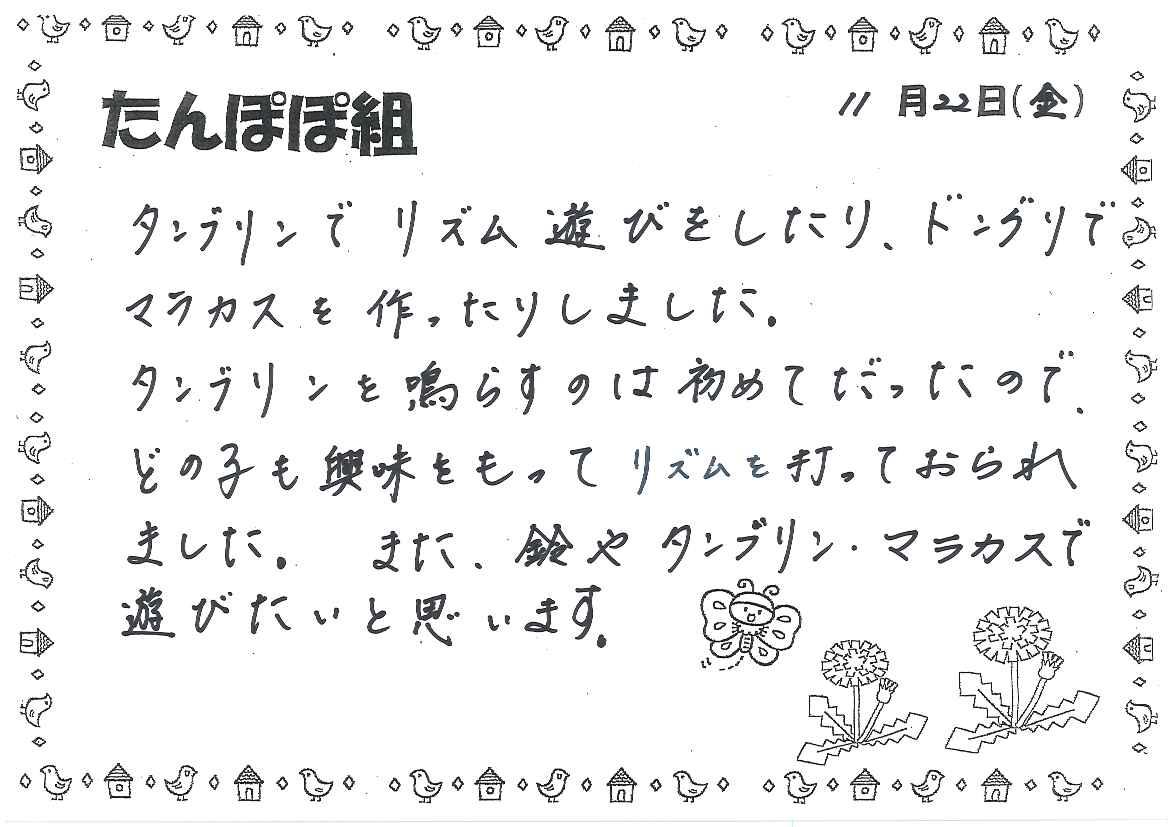 たんぽぽ組
11月22日(金)
タンブリンで リズム 遊びをしたり、ドングリで
マラカスを 作ったりしました。
タンブリンを 鳴らすのは 初めてだったので、
どの子も興味をもって リズムを 打っておられ
ました。 また、鈴や タンブリン・マラカスで
遊びたいと思います。